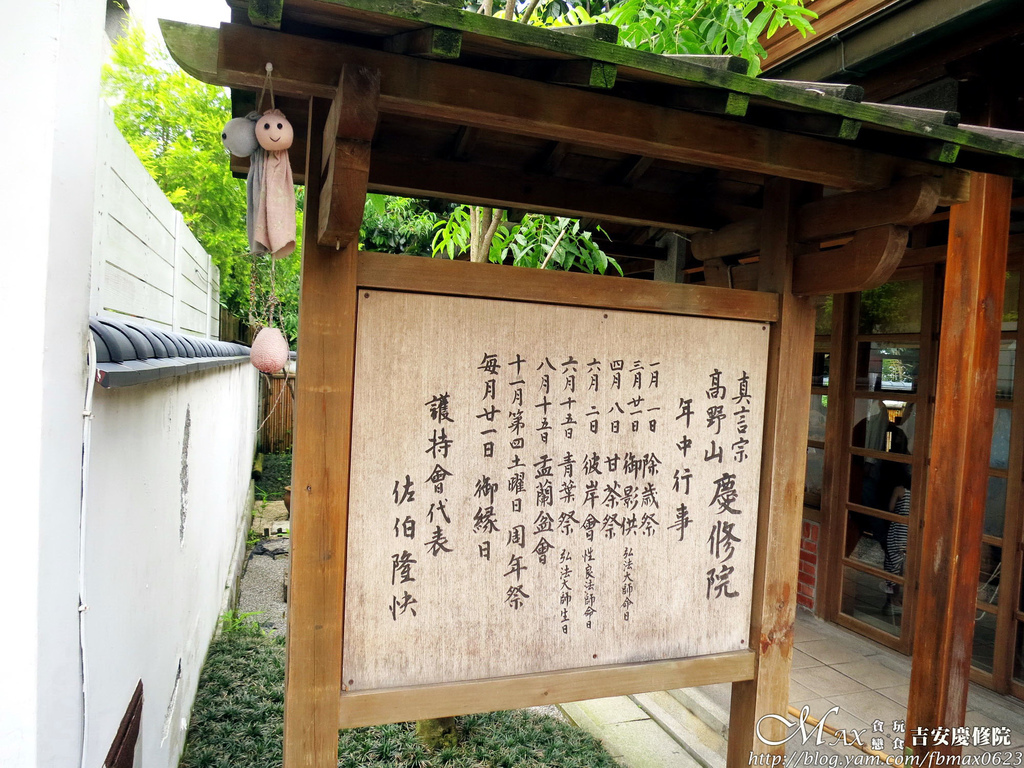 真言宗
高野山 慶修院
年中行事
一月 一日 除歳祭
三月廿一日 御影供 弘法大師命日
四月 八日 甘茶祭
六月 二日 彼岸會 性良法師命日
六月十五日 青葉祭 弘法大師生日
八月十五日 盂蘭盆會
十一月第四土曜日 周年祭
每月廿一日 御縁日
護持會代表
佐伯隆快
MAX 貪玩戀食 吉安慶修院
http://blog.yam.com/fbmax0623